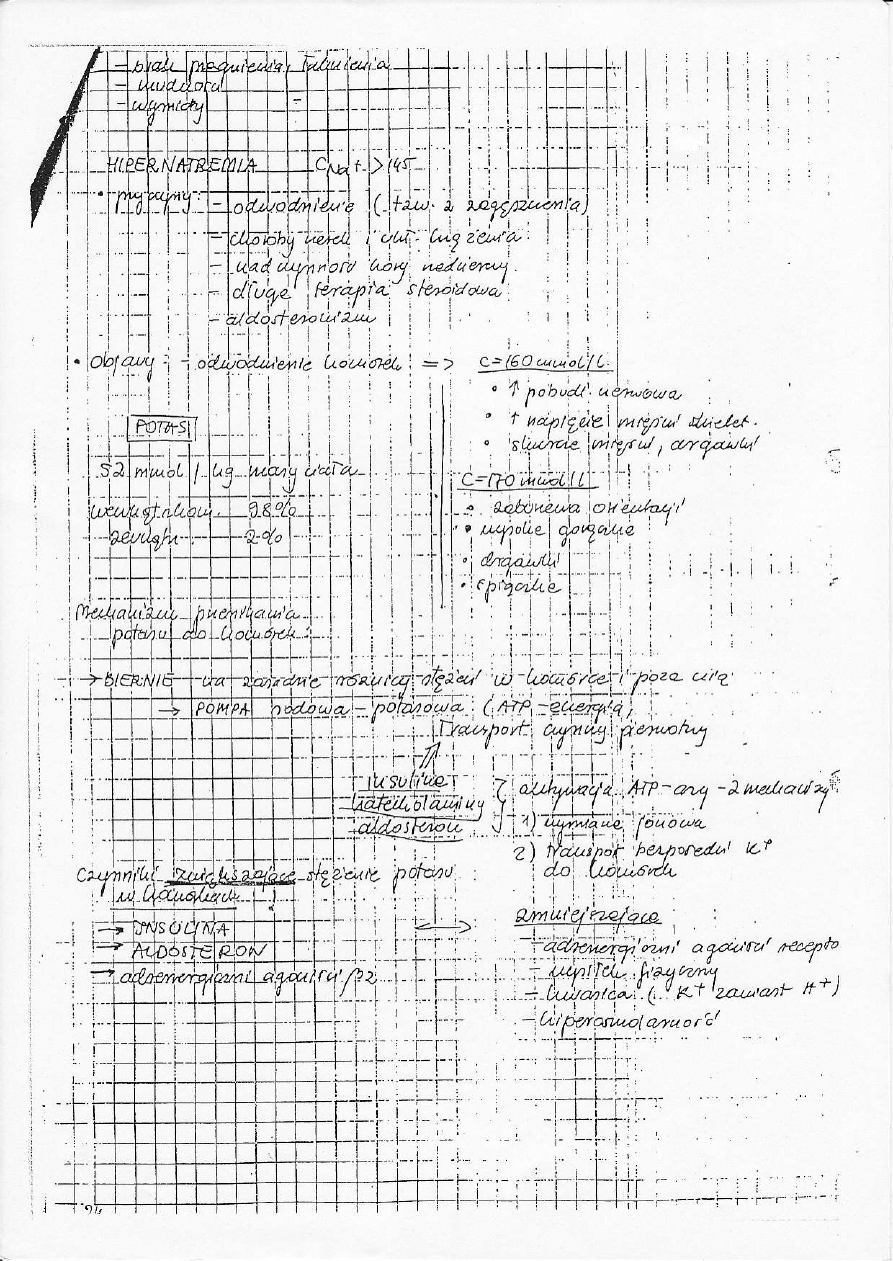 - brak pragnienia, łaknienia
- nudności
- wymioty
HIPERNATREMIA CNa+ > 145
• przyczyny: - odwodnienie (tzw. z zagęszczenia)
- choroby nerek i ukł. krążenia
- nadczynność kory nadnerczy
- długa terapia steroidowa
- aldosteronizm
• Objawy: - odwodnienie komórek: =>
C=160 mmol/l
• ↑ pobudl. nerwowa
• ↑ napięcie mięśni szkielet.
• skurcze mięśni, drgawki
C=170 mmol/l
• zaburzenia orientacji
• wysokie gorączkie
• drgawki
• śpiączka
POTAS
52 mmol / kg masy ciała
wewnątrzkom. 98%
zewnątrz. 2%
Mechanizm przenikania
potasu do komórek:
→ BIERNIE na zasadzie różnicy stężeń w komórce i poza nią
→ POMPA sodowa - potasowa (ATP - energia,
Transport czynny pierwotny
insulina
katecholaminy
aldosteron
} aktywacja ATP-azy - 2 mechanizmy
1) wymiana jonowa
2) transport bezpośredni K+
do komórek
Czynniki zwiększające stężenie potasu
w komórkach !
→ INSULINA
→ ALDOSTERON
→ adrenergiczni agoniści β2
↔ zmniejszające
- adrenergiczni agoniści recepto
- wysiłek fizyczny
- kwasica (K+ zamiast H+)
- hiperosmolarność